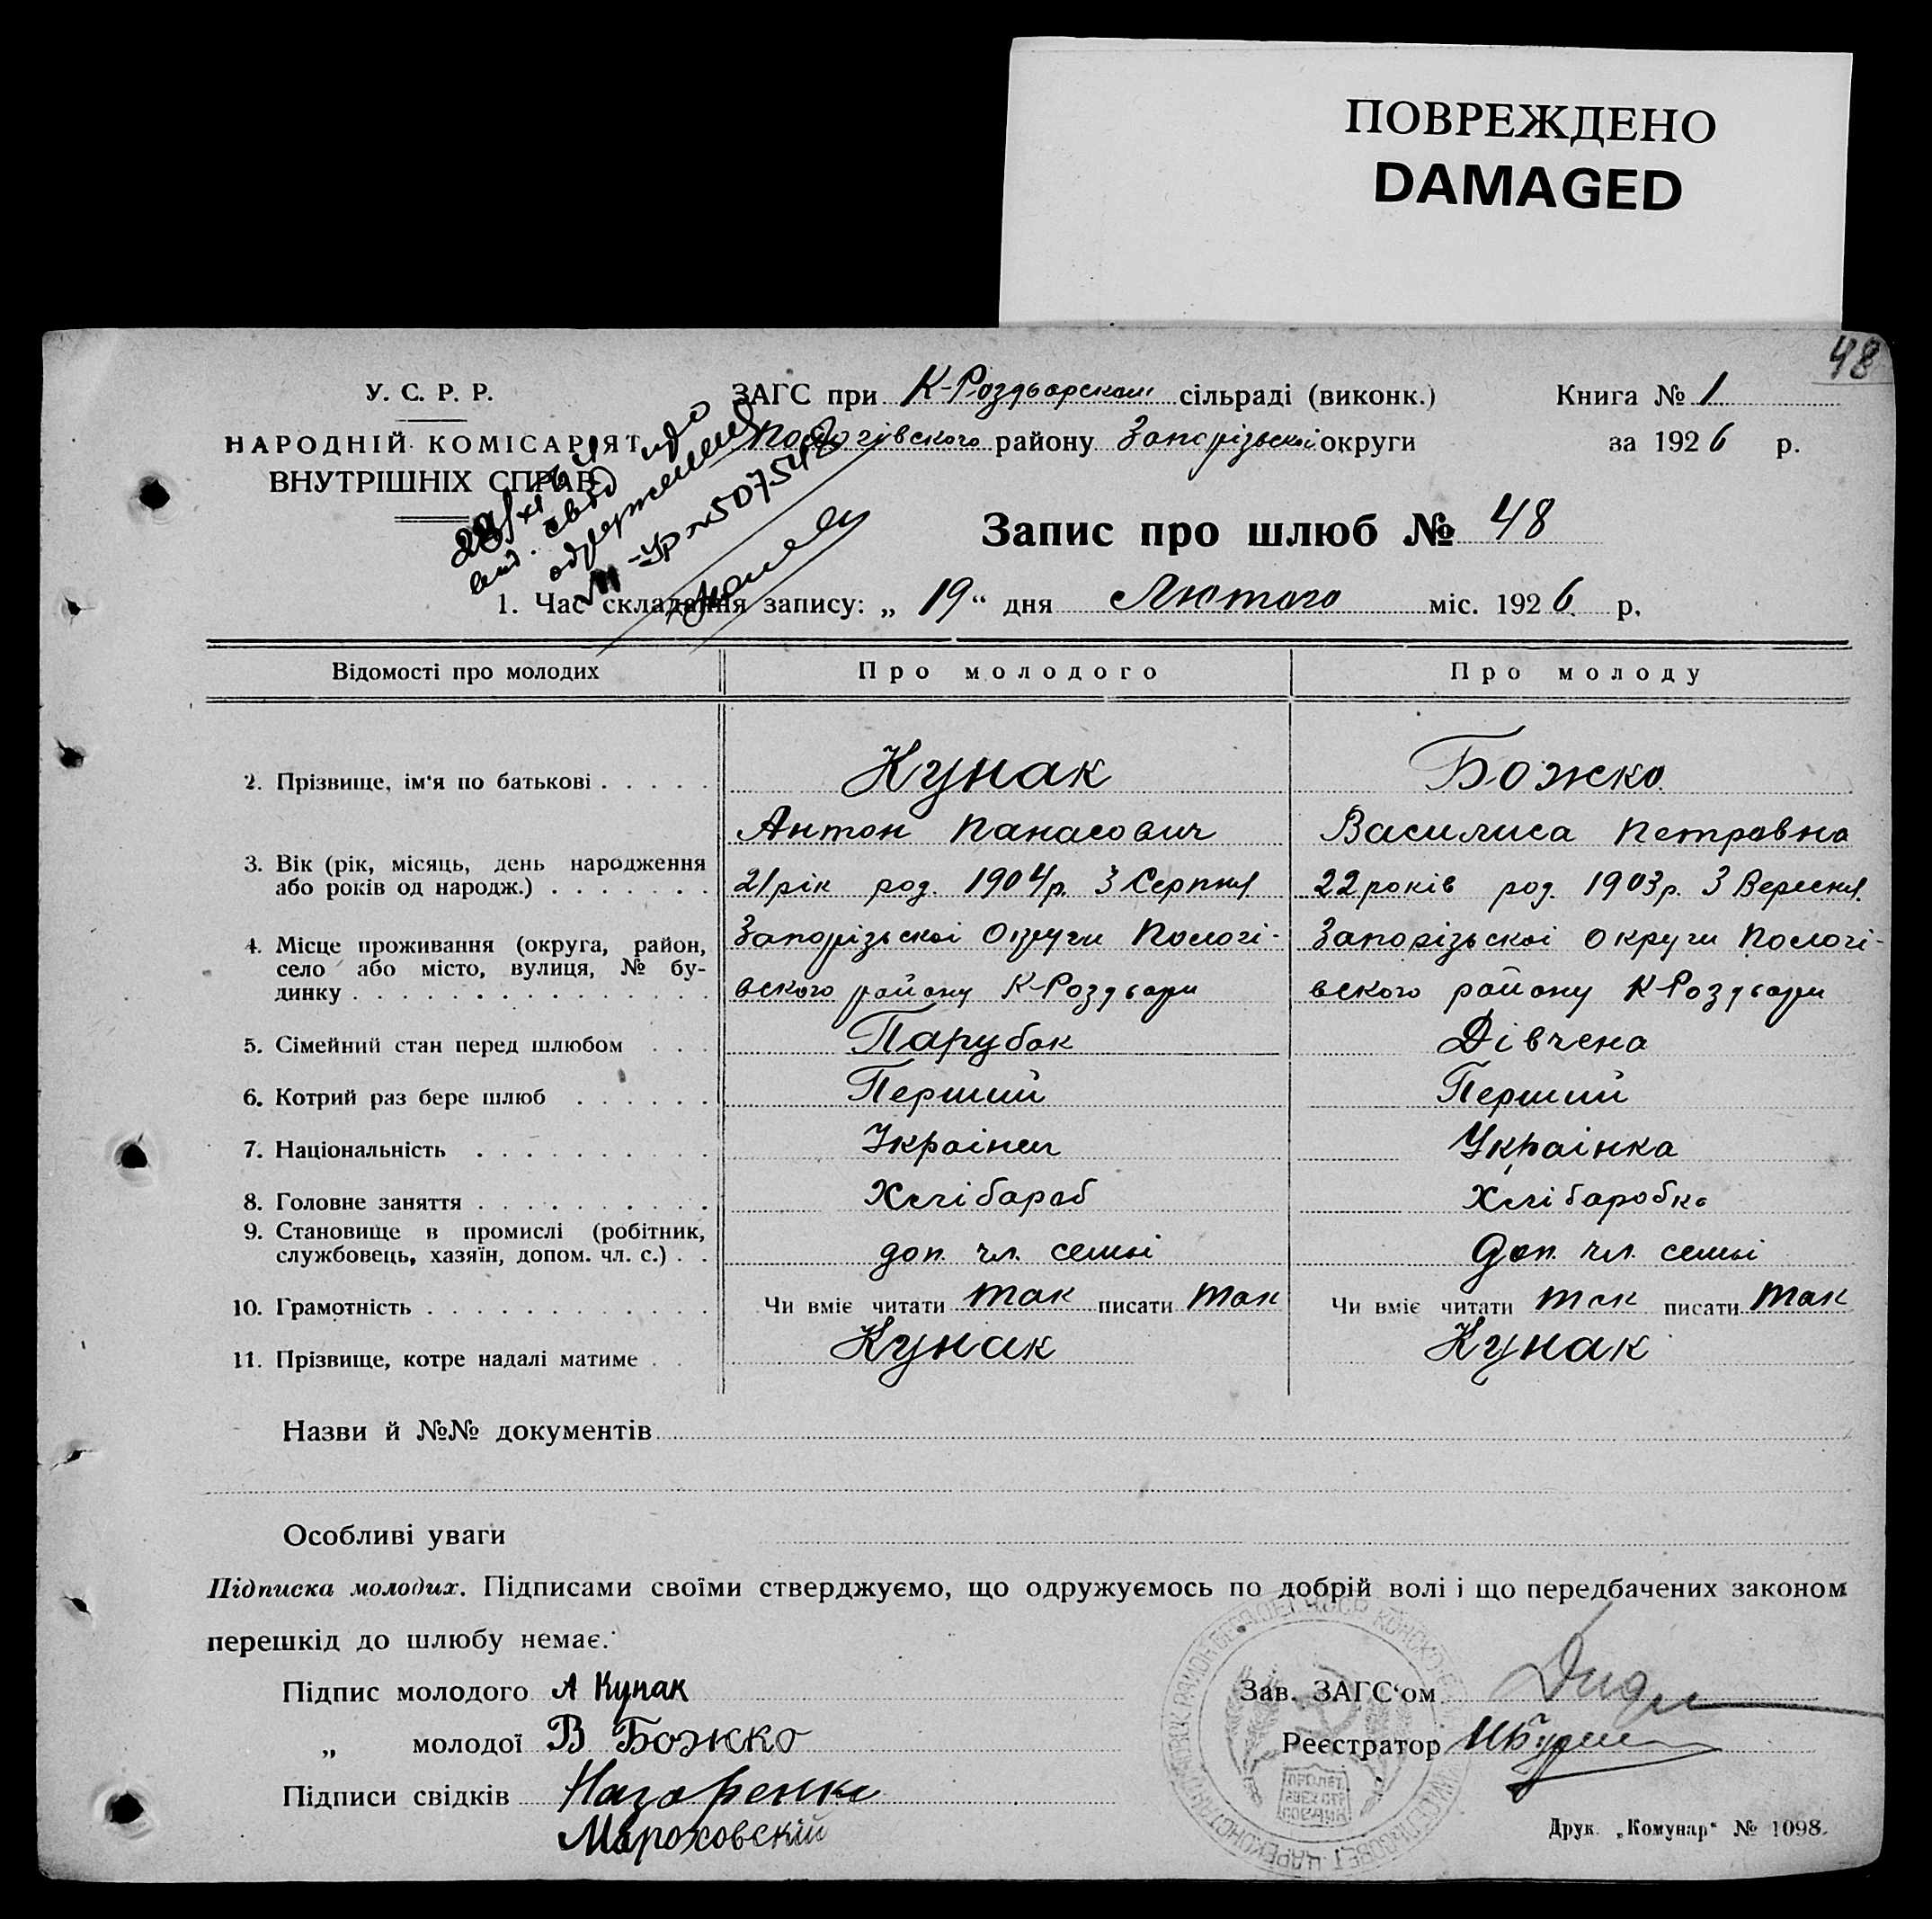 ПОВРЕЖДЕНО
DAMAGED
48
У. С. Р. Р.
НАРОДНІЙ КОМІСАРІЯТ
ВНУТРІШНІХ СПРАВ
ЗАГС при К-Роздорском сільраді (виконк.)
Пологівского району Запорізької округи
Книга № 1
за 1926 р.
Запис про шлюб № 48
1. Час складання запису: „ 19 “ дня Лютого міс. 1926 р.
Відомості про молодих Про молодого Про молоду
2. Прізвище, ім‘я по батькові . . . . . Кунак Божко
Антон Панасович Василиса Петровна
3. Вік (рік, місяць, день народження
або років од народж.) . . . . . . . 21 рік род. 1904 р. 3 Серпня 22 років род. 1903 р. 3 Вересня
4. Місце проживання (округа, район, Запорізьскоі Округи Пологі- Запорізьскоі Округи Пологі-
село або місто, вулиця, № бу-
динку . . . . . . . . . . . . . . . вского району К-Роздори вского району К-Роздори
5. Сімейний стан перед шлюбом . . . Парубок Дівчена
6. Котрий раз бере шлюб . . . . . . Перший Перший
7. Національність . . . . . . . . . . Украінец Украінка
8. Головне заняття . . . . . . . . . . Хлібароб Хлібаробка
9. Становище в промислі (робітник,
службовець, хазяїн, допом. чл. с.) . . доп. чл. семьі доп. чл. семьі
10. Грамотність . . . . . . . . . . . . Чи вміє читати так писати так Чи вміє читати так писати так
11. Прізвище, котре надалі матиме . . Кунак Кунак
Назви й №№ документів
Особливі уваги
Підписка молодих. Підписами своїми стверджуємо, що одружуємось по добрій волі і що передбачених законом
перешкід до шлюбу немає.
Підпис молодого А Кунак
„ молодої В Божко
Підписи свідків Назаренко
Мороховскій
Зав. ЗАГС‘ом
Реєстратор
Друк. „Комунар“ № 1098.